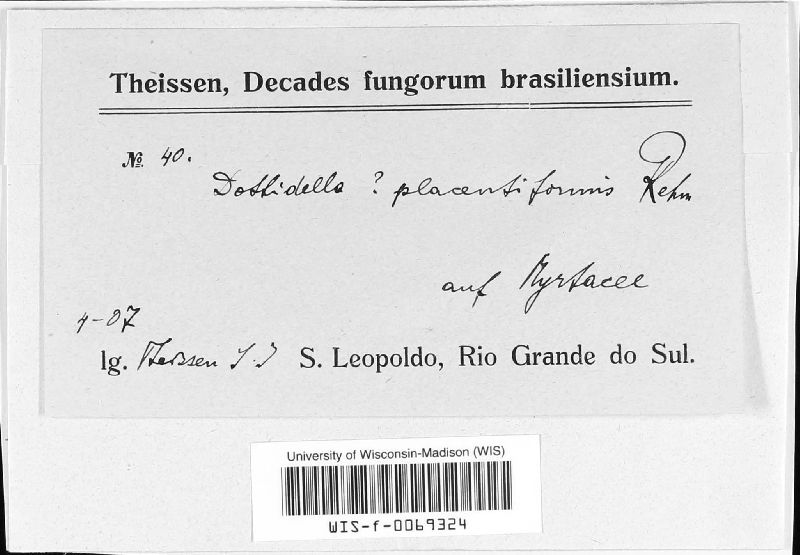 Theissen, Decades fungorum brasiliensium.
№ 40.
Dothidella ? placentiformis Rehm
auf Myrtacee
4-07
lg. Theissen S. J S. Leopoldo, Rio Grande do Sul.
University of Wisconsin-Madison (WIS)
WIS-f-0069324